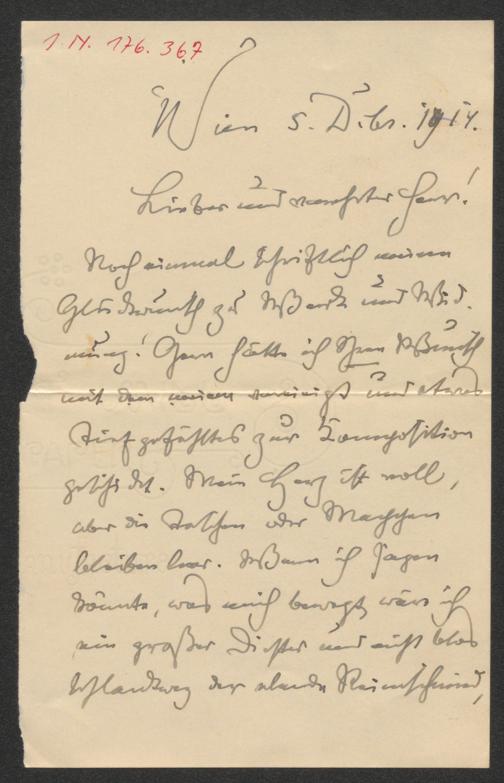 I.N. 176.367
Wien 5. Dzbr. 1914.
Lieber und verehrter Herr!
Noch einmal schriftlich meinen
Glückwunsch zu Werk und Wid-
mung! Gern hätte ich Ihren Wunsch
mit dem meinen vereinigt und etwas
Tiefgefühltes zur Composition
geschickt. Mein Herz ist voll,
aber die Taschen oder Mappen
bleiben leer. Wenn ich sagen
könnte, was mich bewegt, wäre ich
ein großer Dichter und nicht blos
schlankweg der elende Reimschmied,